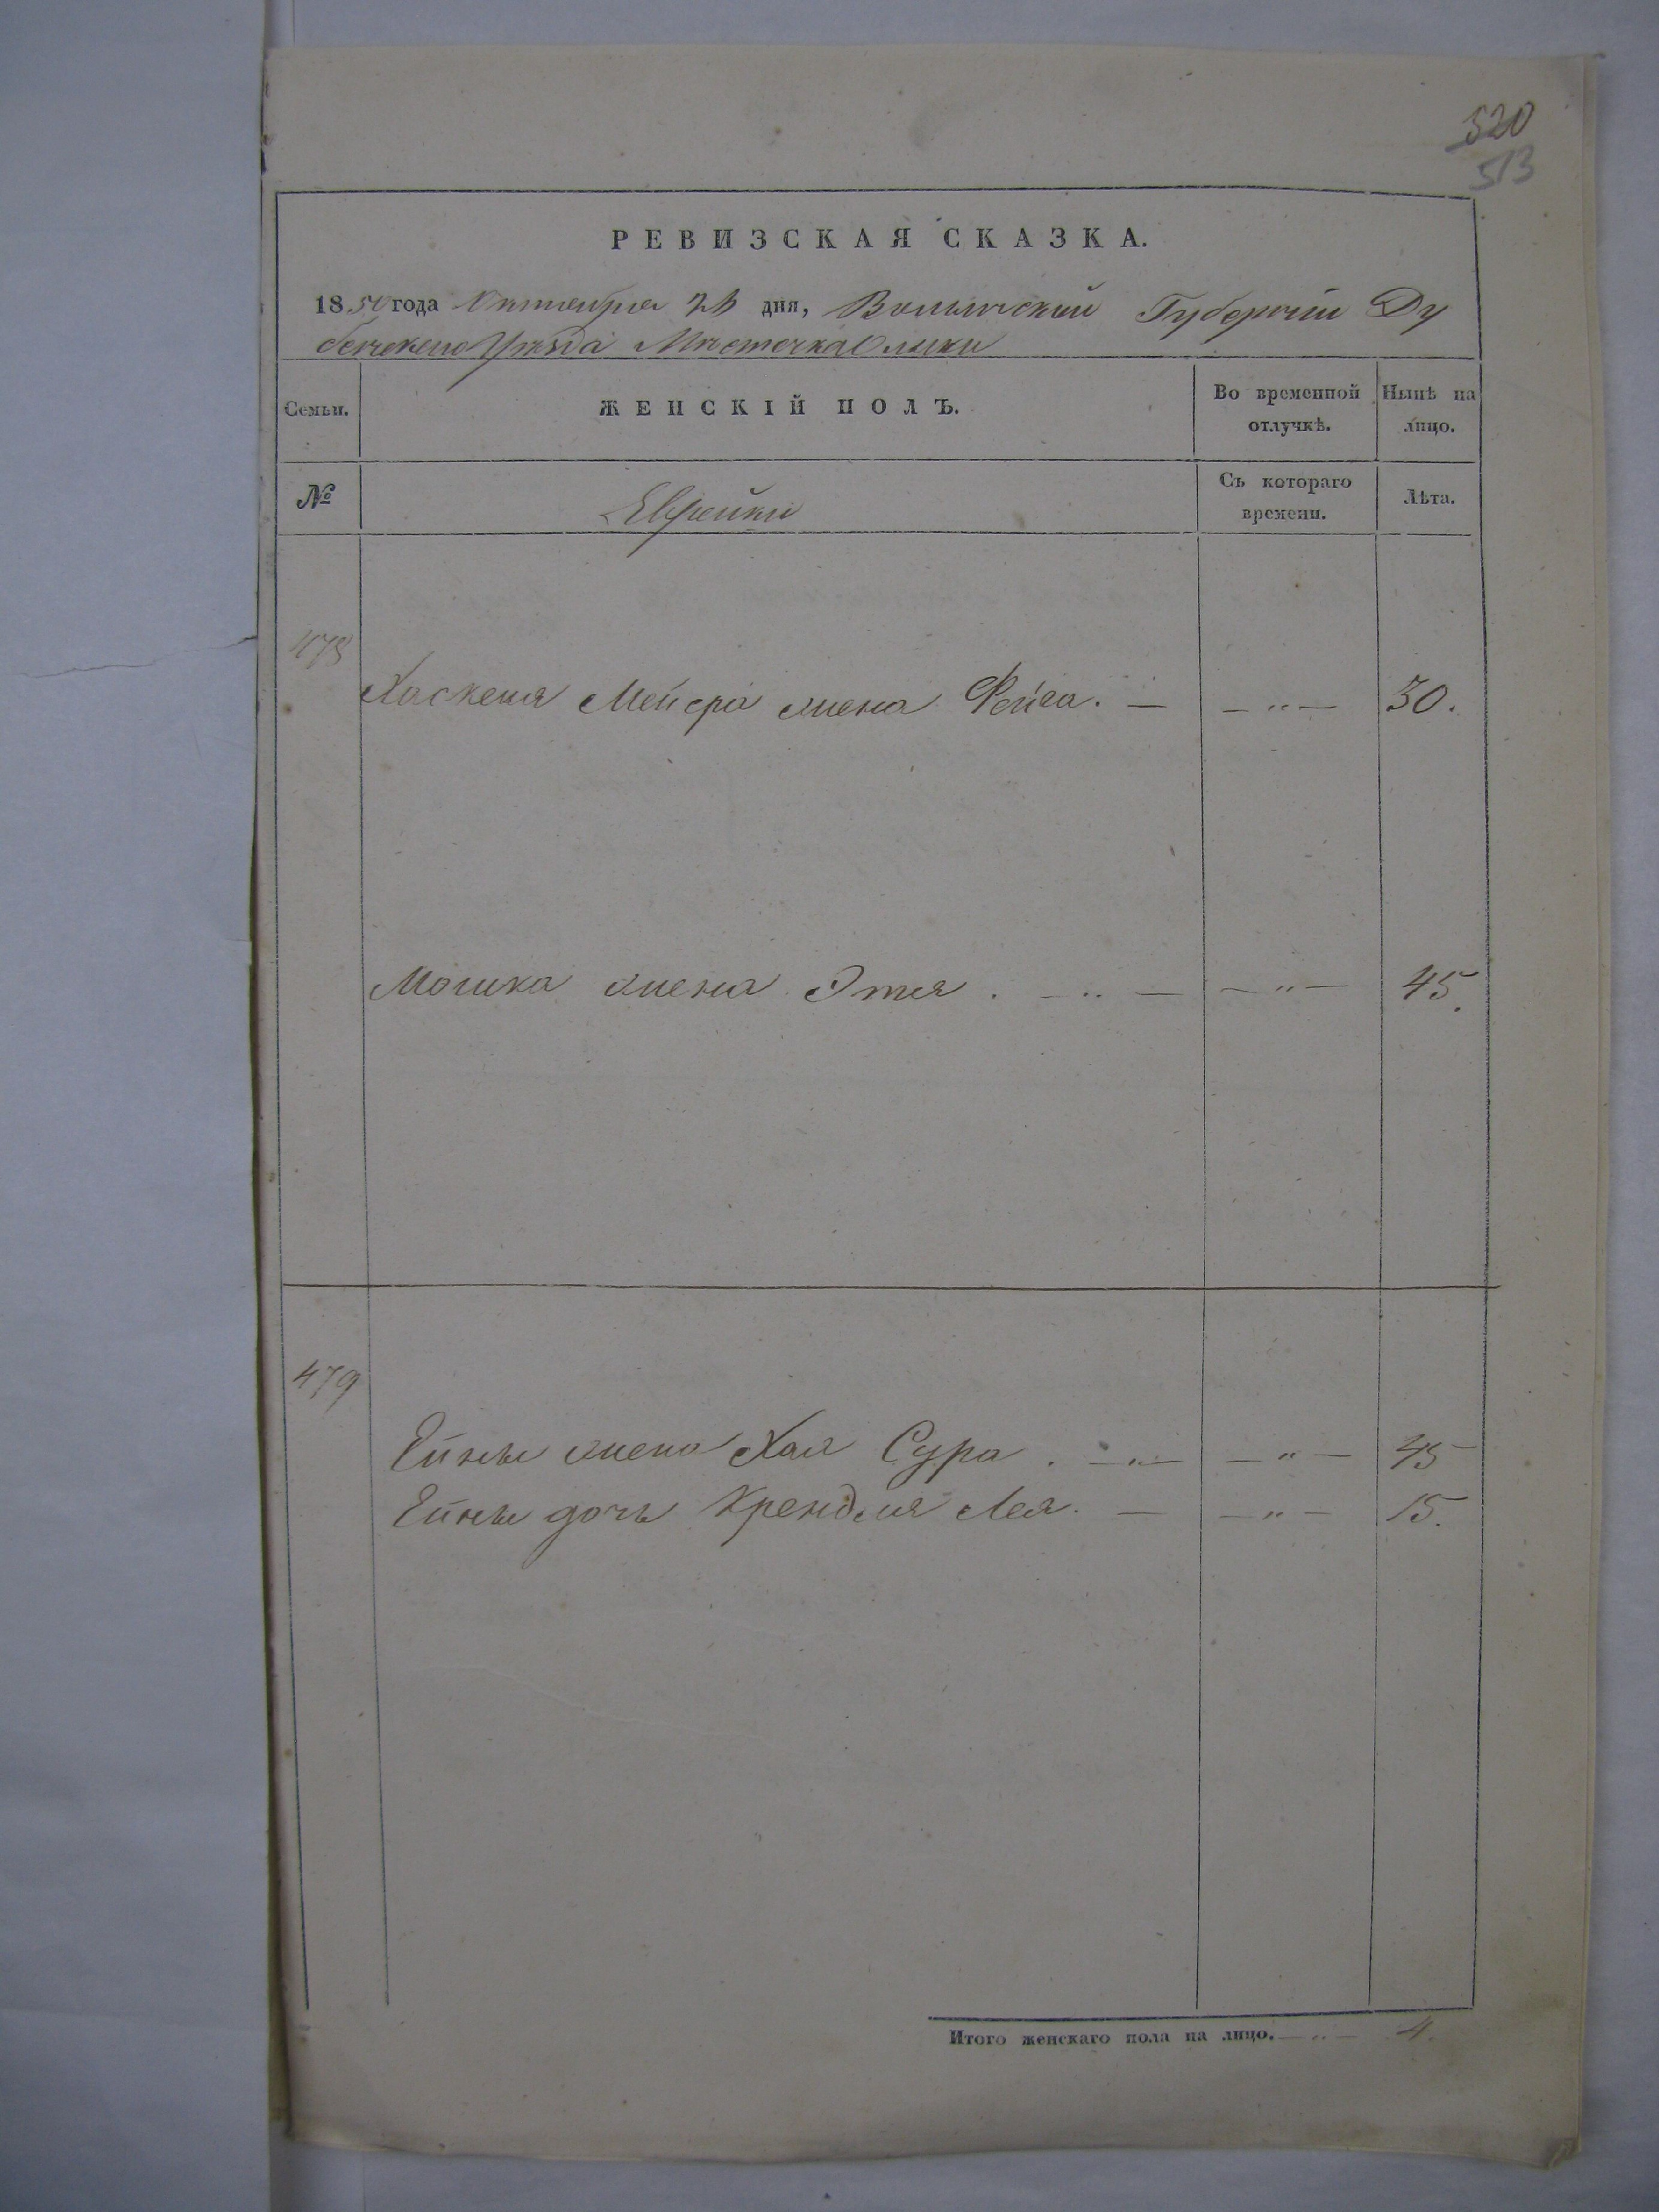 520
513
РЕВИЗСКАЯ СКАЗКА.
1850 года Октября дня, Волынской Губернии Ду
бенскаго Уѣзда Мѣстечка Олыки
Семьи. ЖЕНСКІЙ ПОЛЪ. Во временной отлучкѣ. Нынѣ на лицо.
№ Еврейки Съ котораго времени. Лѣта.
478
Хаскеля Мейера жена Фейга. — — „ — 30.
Мошка жена Этля . — „ — — „ — 45.
479
Ейны жена Хая Сура . — „ — — „ — 45
Ейны дочь Крендля Лея. — — „ — 15.
Итого женскаго пола на лицо. — „ — 4.